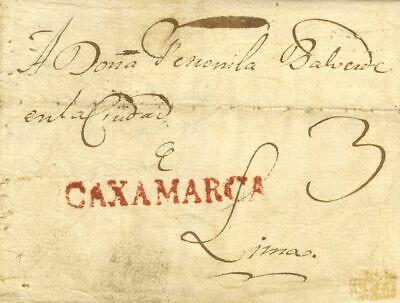 A Doña Petronila Balverde
en la Ciudad
e
3
CAXAMARCA
Lima.